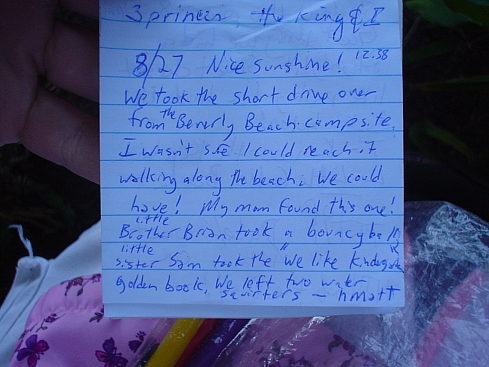 3 princess, the King & I
8/27 Nice sunshine! 12:38
We took the short drive over
from the Beverly Beach campsite.
I wasn't sure I could reach it
walking along the beach. We could
have! My mom found this one!
little
Brother Brian took a bouncy ball &
little
sister Sam took the "We like Kindergarten"
golden book. We left two water
squirters — hmott